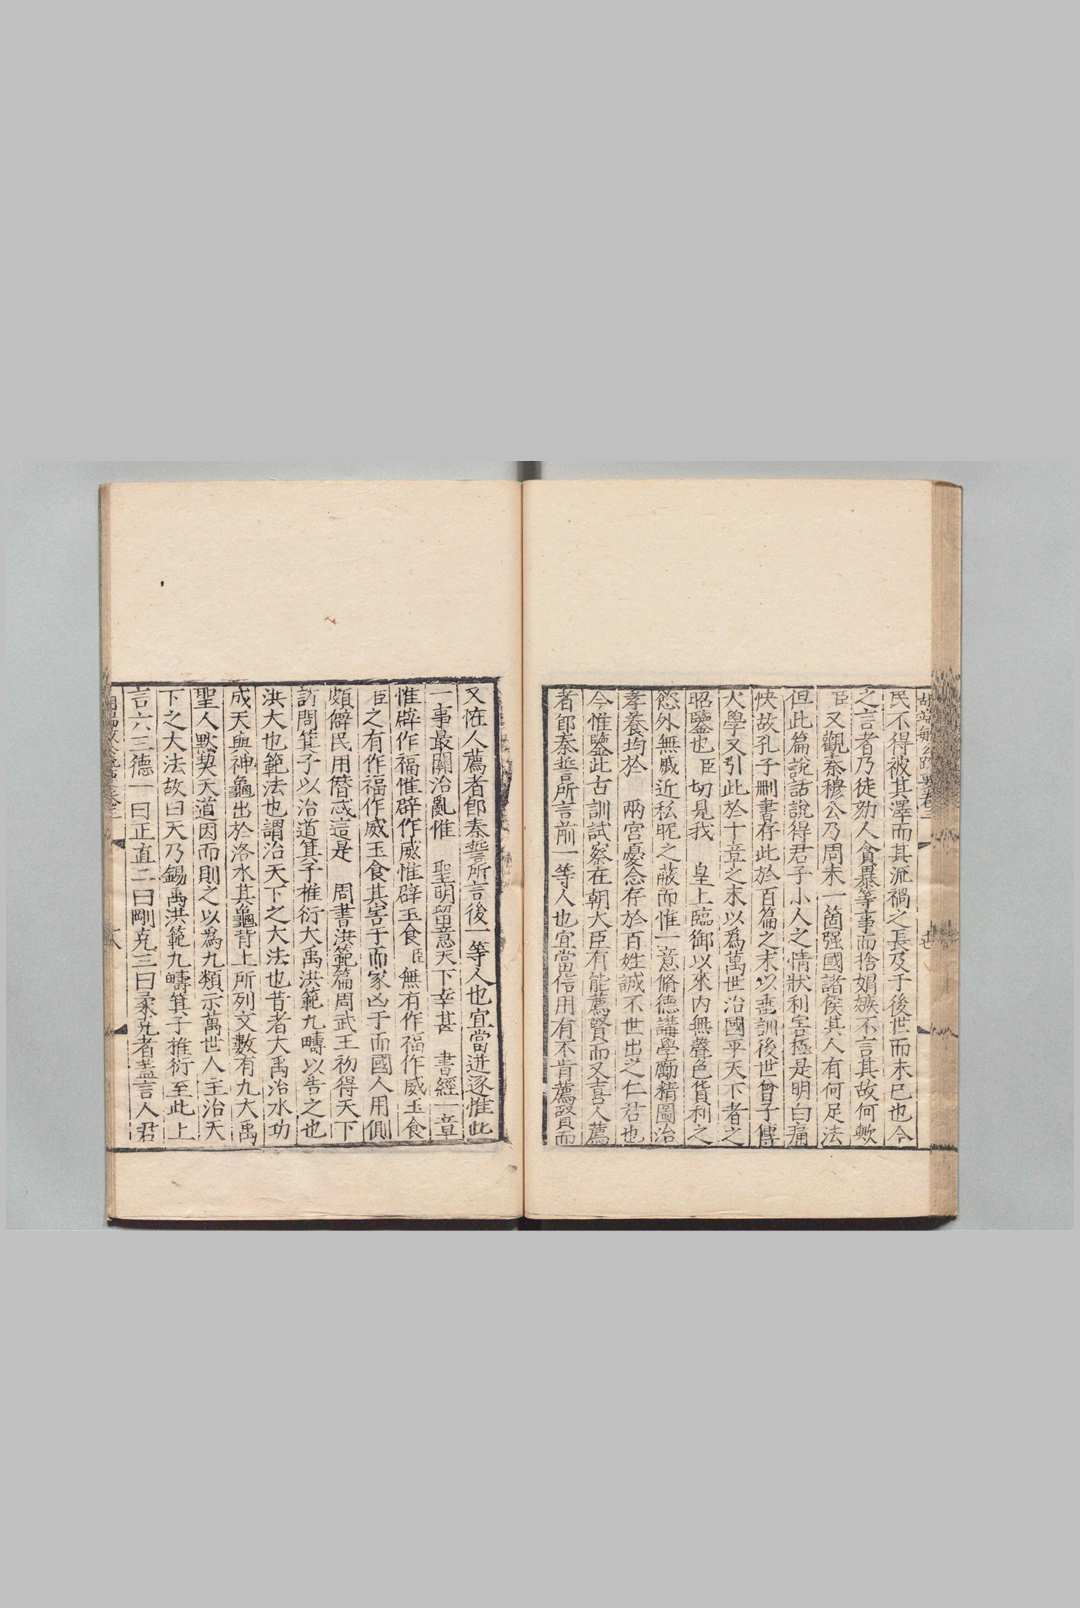 民不得被其澤而其流禍之長及于後世而未已也今
之言者乃徒効人貪暴等事而捨娼嫉不言其故何歟
臣又觀秦穆公乃周末一箇强國諸侯其人有何足法
但此篇說話說得君子小人之情狀利害極是明白痛
快故孔子刪書存此於百篇之末以垂訓後世曾子傳
大學又引此於十章之末以為萬世治國平天下者之
昭鑒也臣切見我 皇上臨御以來內無聲色貨利之
慾外無戚近私昵之蔽而惟一意脩德講學勵精圖治
孝養均於 兩宮憂念存於百姓誠不世出之仁君也
今惟鑒此古訓試察在朝大臣有能薦賢而又喜人薦
者即秦誓所言前一等人也宜當信用有不肯薦賢而
又怪人薦者即秦誓所言後一等人也宜當迸逐惟此
一事最關治亂惟 聖明留意天下幸甚 書經一章
惟辟作福惟辟作威惟辟玉食臣無有作福作威玉食
臣之有作福作威玉食其害于而家凶于而國人用側
頗僻民用僭忒這是 周書洪範篇周武王初得天下
訪問箕子以治道箕子推衍大禹洪範九疇以告之也
洪大也範法也謂治天下之大法也昔者大禹治水功
成天與神龜出於洛水其龜背上所列文數有九大禹
聖人默契天道因而則之以為九類示萬世人主治天
下之大法故曰天乃錫禹洪範九疇箕子推衍至此上
言六三德一曰正直二曰剛克三曰柔克者蓋言人君